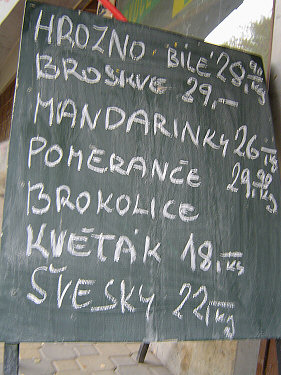 HROZNO BÍLÉ 28,90 kg
BROSKVE 29,-
MANDARINKY 26,- kg
POMERANČE 29,90 kg
BROKOLICE
KVĚTÁK 18,- ks
ŠVESKY 22,- kg